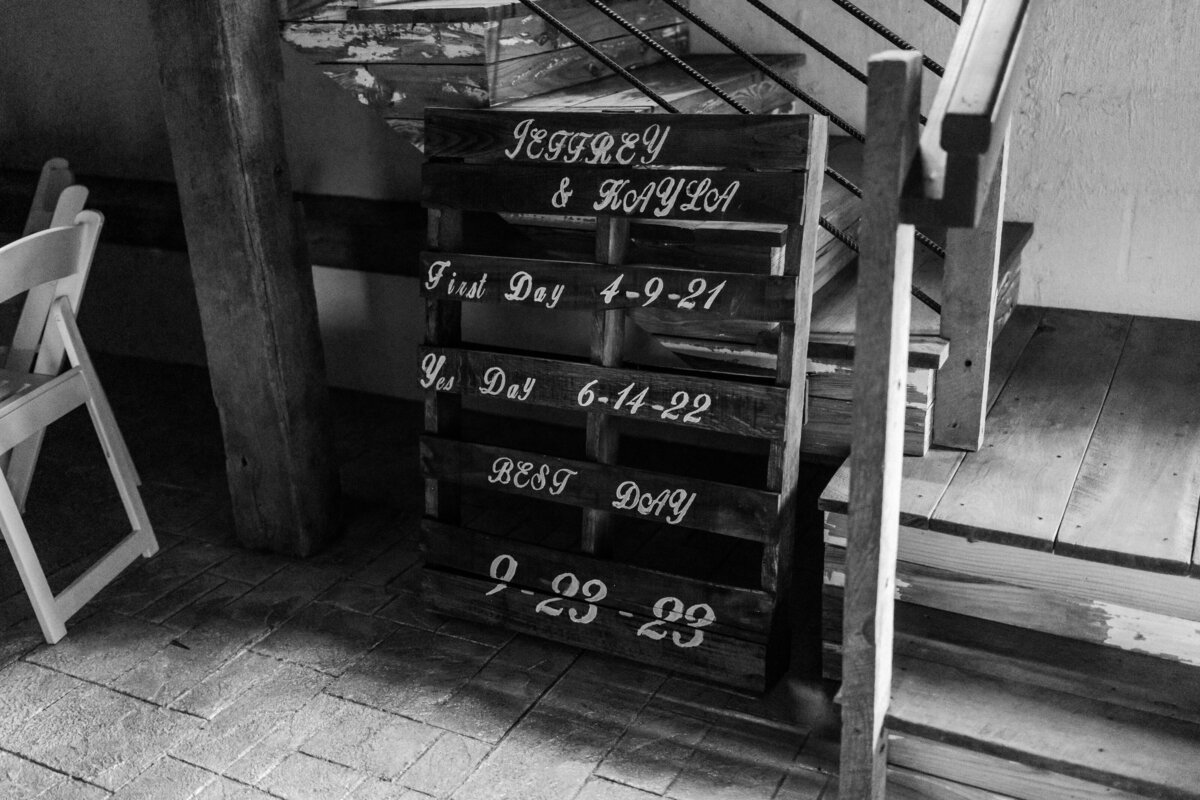 JEFFREY
& KAYLA
First Day 4-9-21
Yes Day 6-14-22
BEST DAY
9-23-23